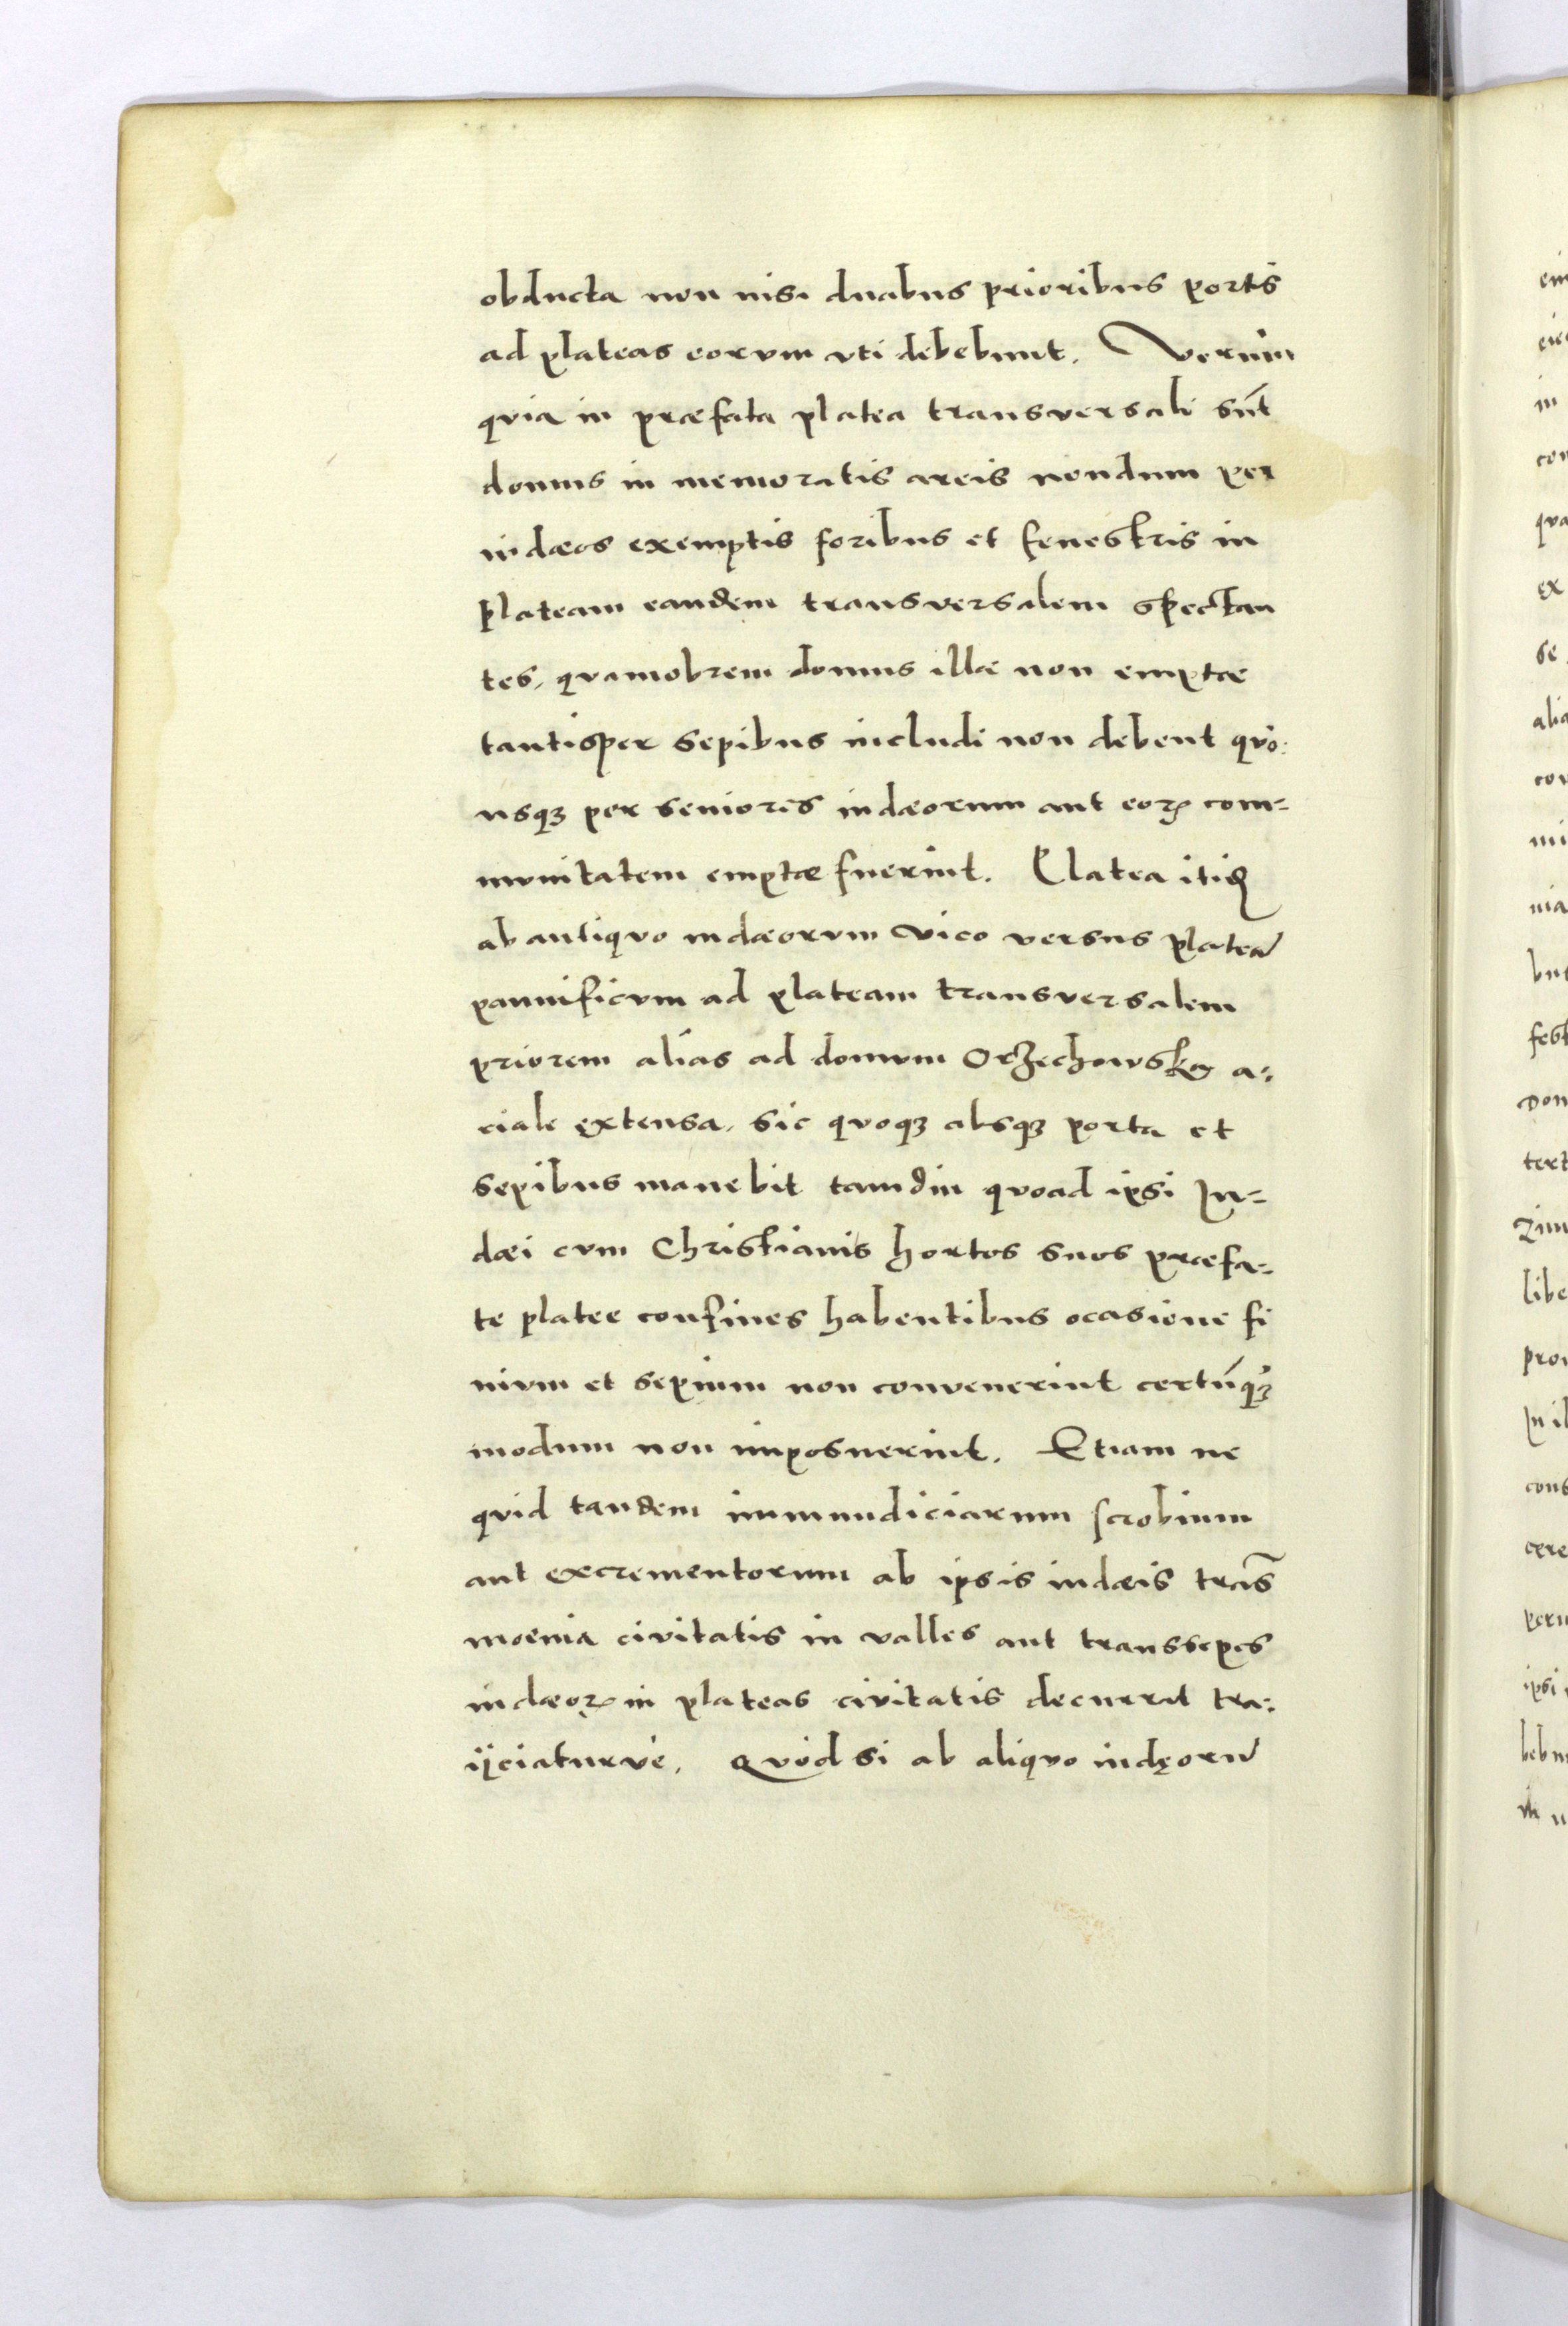 obducta non nisi duabus prioribus portis
ad plateas eorum vti debebunt. Verùm
quia in praefata platea transversali sūt
domus in memoratis areis nondum per
iudaeos exemptis foribus et fenestris in
plateam eandem transversalem spectan
tes, quamobrem domus illae non emptae
tantisper sepibus includi non debent quo:
usqꝫ per seniores iudaeorum aut eorꝝ com-
munitatem emptae fuerint. Platea itidē
ab antiquo iudaeorum vico versus plateā
pannificum ad plateam transversalem
priorem aliàs ad domum Orzechowska a:
ciale extensa, sic quoqꝫ absqꝫ porta et
sepibus manebit tamdiu quoad ipsi Iu-
daei cum Christianis hortos suos praefa-
te platee confines habentibus ocasione fi
nium et sepium non convenerint certūqꝫ
modum non imposuerint. Etiam ne
quid tandem immundiciarum scrobium
aut excrementorum ab ipsis iudaeis trās
moenia civitatis in valles aut transsepes
iudaeorꝝ in plateas civitatis decurrat tra:
ijciaturvè. Quòd si ab aliquo iudęorū